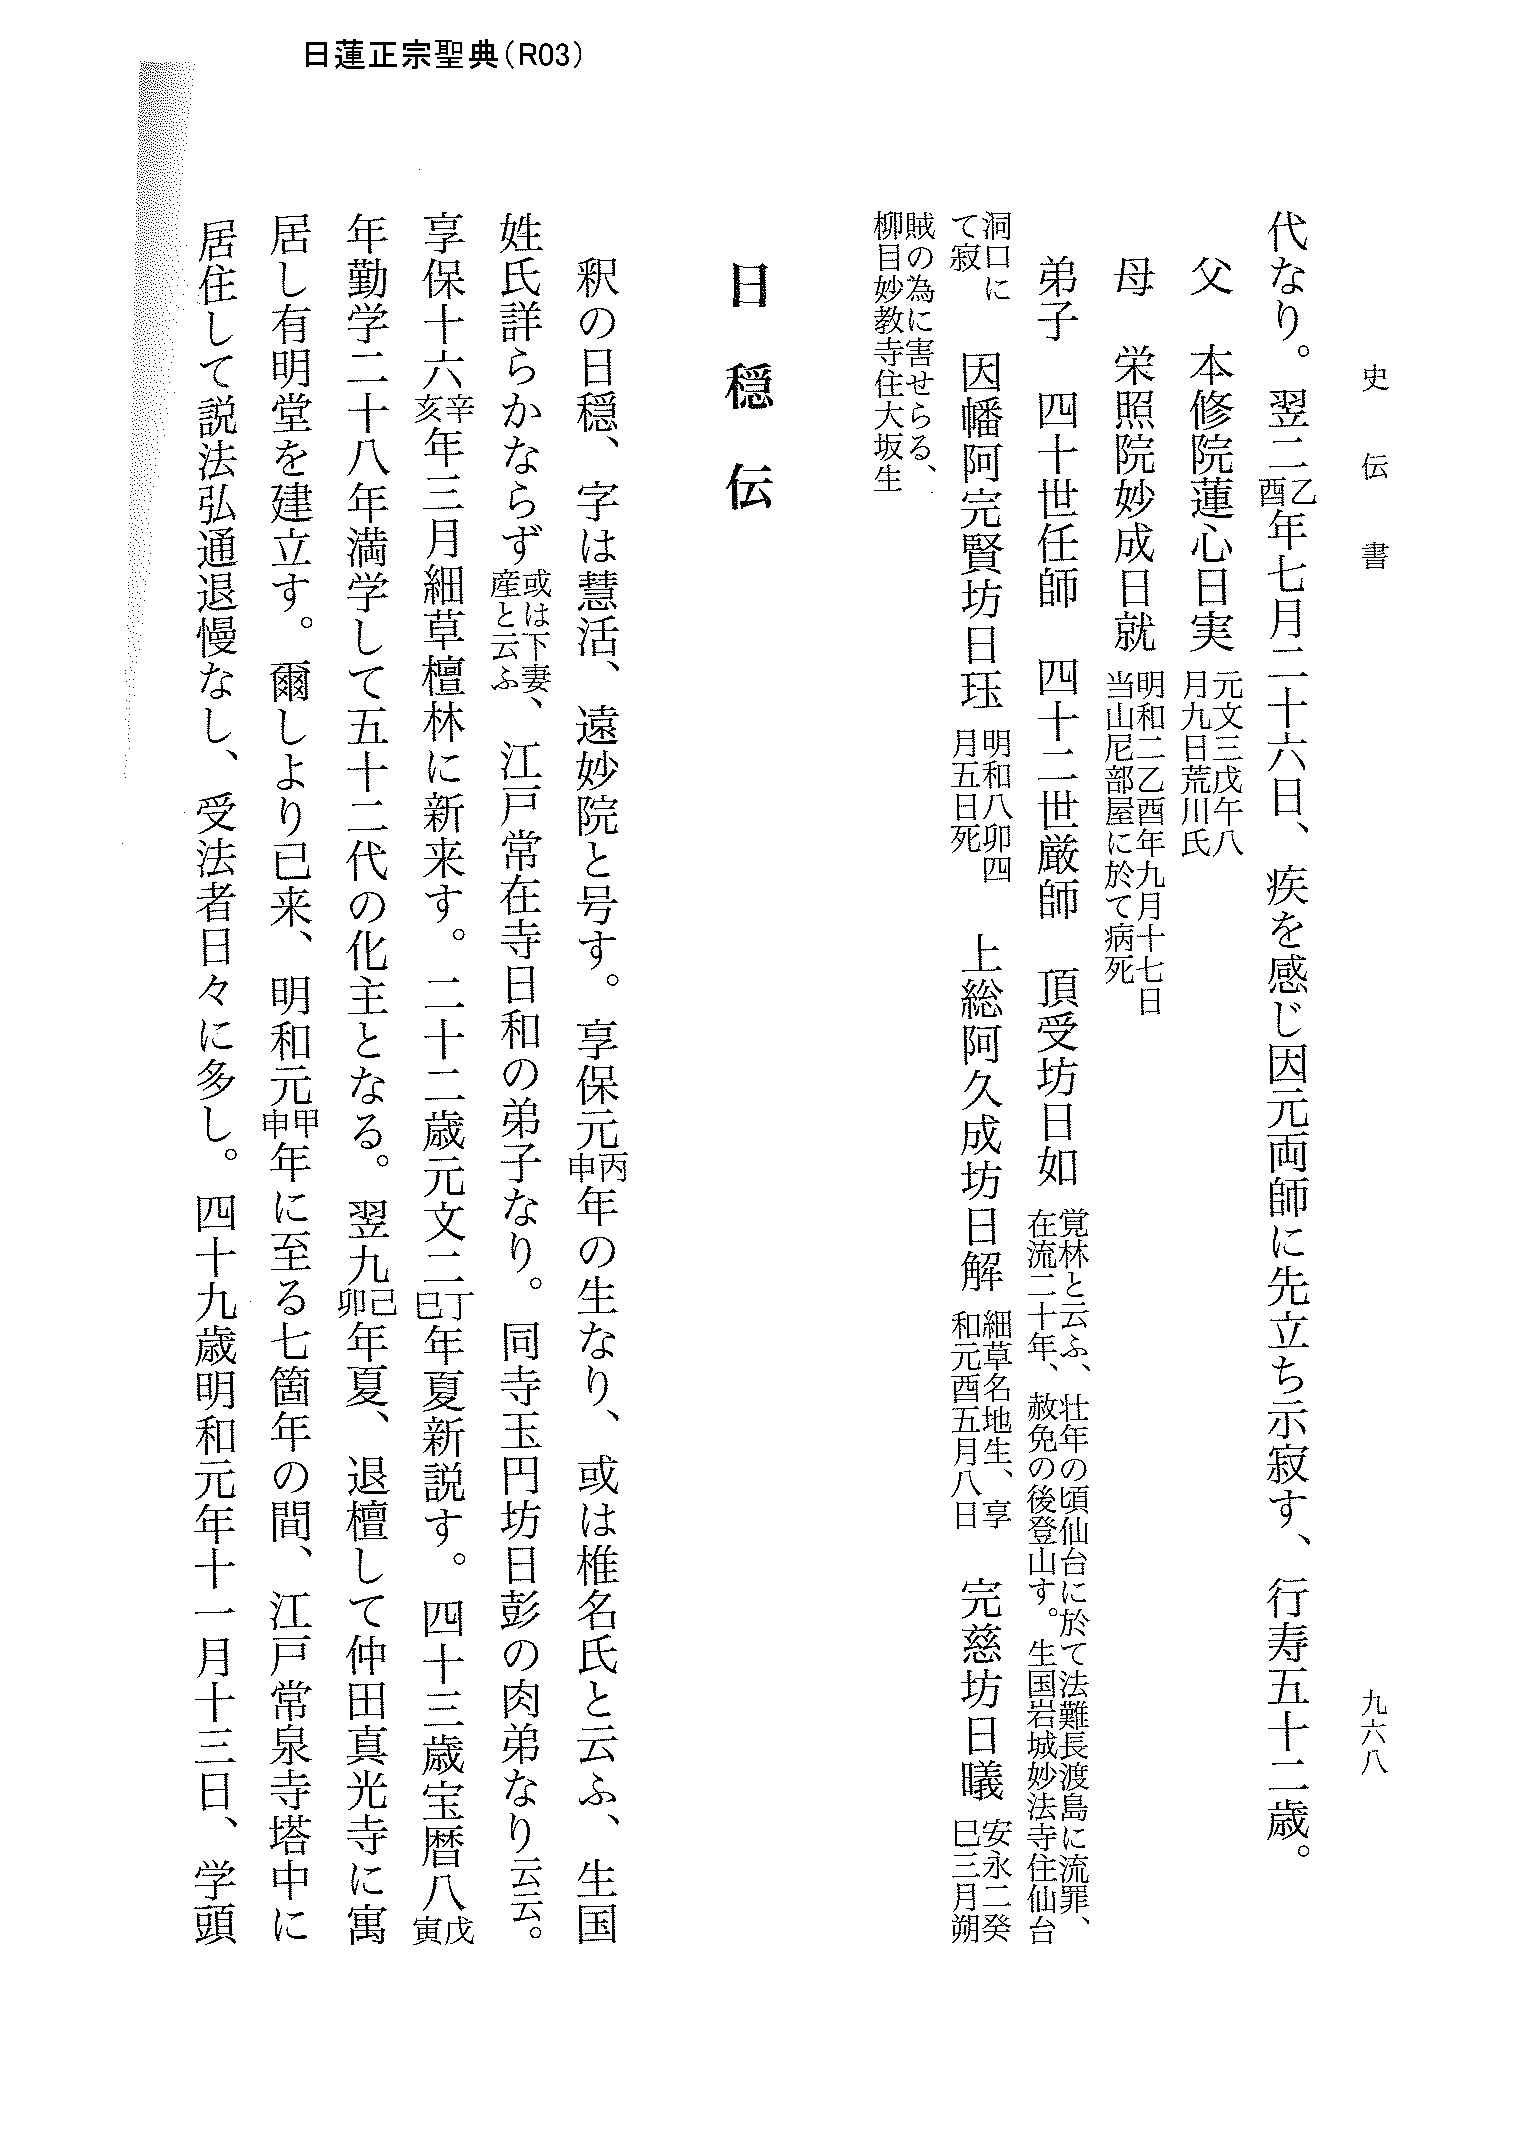 日蓮正宗聖典(R03)
史伝書
九六八
代なり。翌二乙酉年七月二十六日、疾を感じ因元両師に先立ち示寂す、行寿五十二歳。
父　本修院蓮心日実　元文三戊午八月九日荒川氏
母　栄照院妙成日就　明和二乙酉年九月十七日当山尼部屋に於て病死
弟子　四十世任師　四十二世厳師　頂受坊日如　覚林と云ふ、壮年の頃仙台に於て法難長渡島に流罪、在流二十年、赦免の後登山す。生国岩城妙法寺住仙台
洞口にて寂　因幡阿完賢坊日珏　明和八卯四月五日死　上総阿久成坊日解　細草名地生、享和元酉五月八日　完慈坊日曦　安永二癸巳三月朔
賊の為に害せらる、柳目妙教寺住大坂生
日穏伝
釈の日穏、字は慧活、遠妙院と号す。享保元丙申年の生なり、或は椎名氏と云ふ、生国
姓氏詳らかならず或は下妻産と云ふ、江戸常在寺日和の弟子なり。同寺玉円坊日彭の肉弟なり云云。
享保十六辛亥年三月細草檀林に新来す。二十二歳元文二丁巳年夏新説す。四十三歳宝暦八戊寅
年勤学二十八年満学して五十二代の化主となる。翌九己卯年夏、退檀して仲田真光寺に寓
居し有明堂を建立す。爾しより已来、明和元甲申年に至る七箇年の間、江戸常泉寺塔中に
居住して説法弘通退慢なし、受法者日々に多し。四十九歳明和元年十一月十三日、学頭